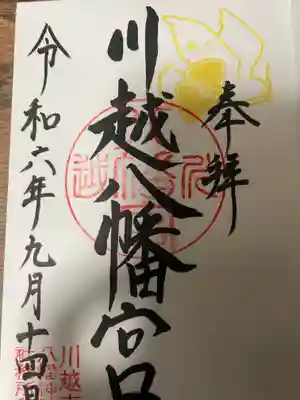 奉拝
川越八幡宮
令和六年九月十四日
川越